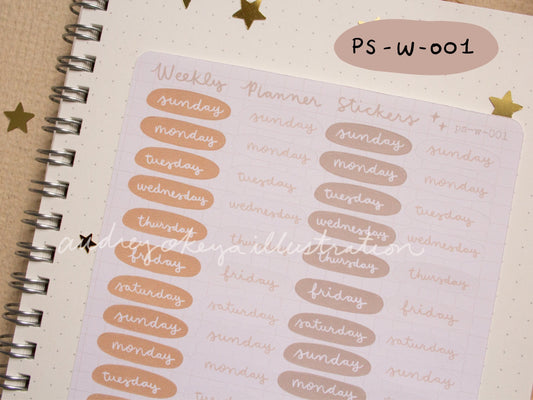 PS-W-001
Weekly Planner Stickers
ps-w-001
sunday sunday sunday sunday
monday monday monday monday
tuesday tuesday tuesday tuesday
wednesday wednesday wednesday wednesday
thursday thursday thursday thursday
audreyokeyaillustration
friday friday friday friday
saturday saturday saturday saturday
sunday sunday sunday sunday
monday monday monday monday
tuesday tuesday